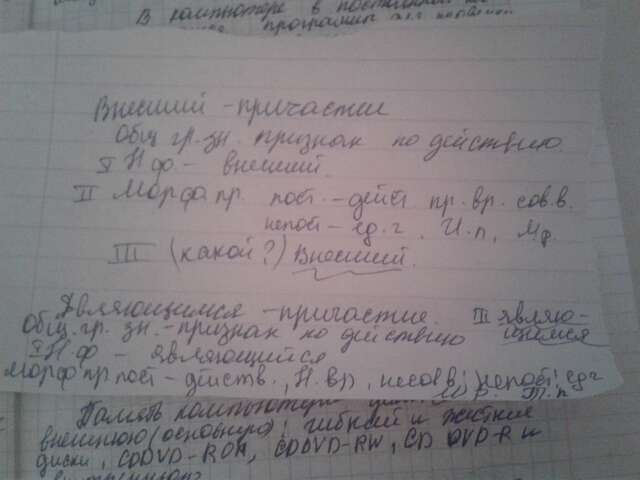 В компьютере в постоянной
программ
Внесший - причастие
Общ гр. зн. признак по действию.
I Н.ф. - внесший.
II Морф. пр. пост. - дейст пр. вр. сов. в.
непост - ед. ч. И. п, М.р.
III (какой?) Внесший.
Являющимся - причастие. III являю-
щимся
Общ. гр. зн. - признак по действию
I Н.ф - являющийся
Морф пр пост - действ., Н. вр, несов в; непост; ед ч
М. р. Т. п
Память компьютера
внешнюю (основную); гибкий и жёсткие
диски, CDDVD-ROM, CDDVD-RW, CD DVD-R и